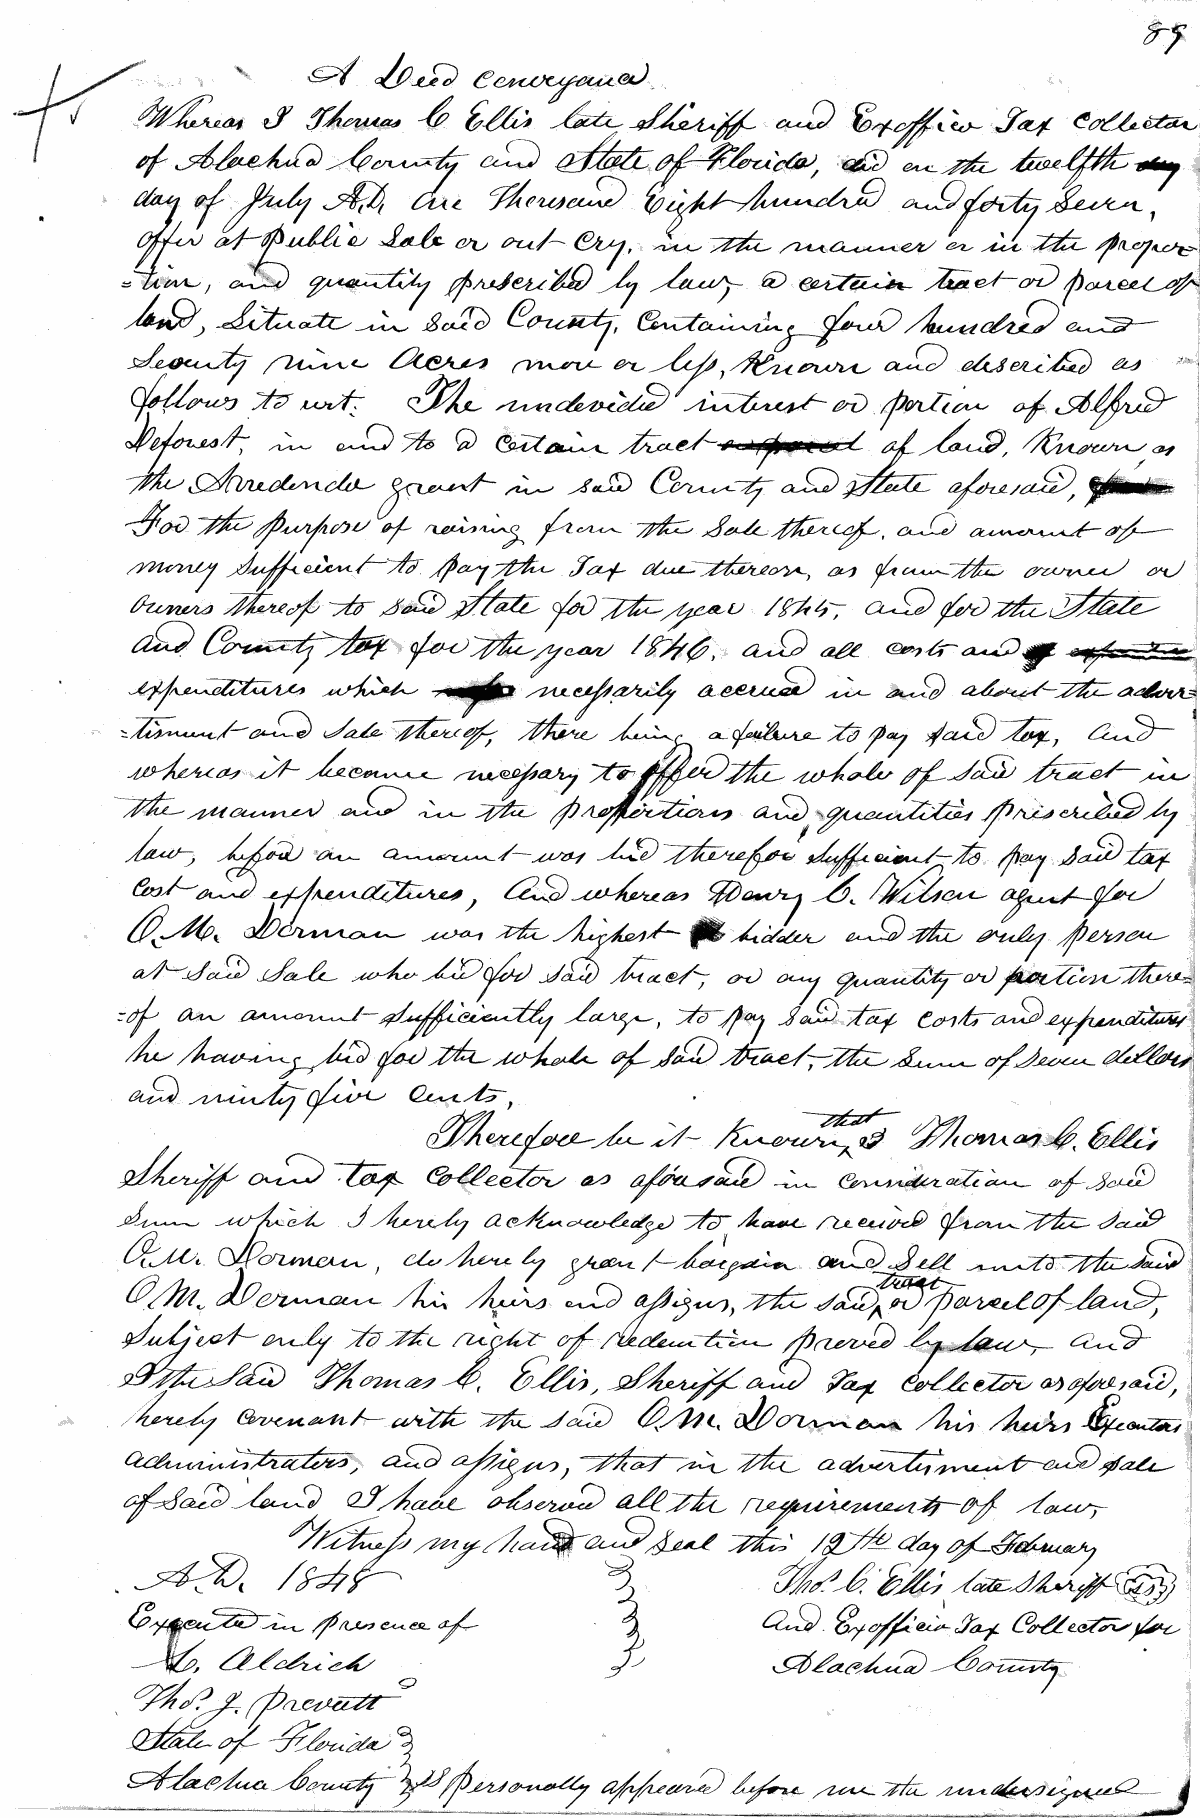 89
A Deed Conveyance
Whereas I Thomas C Ellis late Sheriff and Exofficio Tax Collector
of Alachua County and State of Florida, did on the twelfth day
day of July A.D. One Thousand Eight hundred and forty Seven,
offer at Public Sale or out Cry, in the manner or in the propor=
=tion, and quantity prescribed by law, a certain tract or parcel of
land, Situate in said County, Containing four hundred and
Seventy nine Acres more or less, Known and described as
follows to wit: The undevided interest or portion of Alfred
Deforest, in and to a certain tract or parcel of land, Known as
the Arredondo grant in said County and State aforesaid,
For the Purpose of raising from the Sale thereof, and amount of
money Sufficient to pay the Tax due thereon, as from the owner or
owners thereof to said State for the year 1845, and for the State
and County tax for the year 1846, and all costs and of expenditures
expenditures which necessarily accrued in and about the adver=
=tisment and Sale thereof, there being a failure to pay said tax, And
whereas it became necessary to offer the whole of said tract in
the manner and in the proportions and quantities prescribed by
law, before an amount was bid therefor sufficient to pay said tax
Cost and expenditures, And whereas Henry C. Wilson agent for
O. M. Dorman was the highest bidder and the only person
at said Sale who bid for said tract, or any quantity or portion there=
=of an amount sufficiently large, to pay said tax costs and expenditures
he having bid for the whole of said tract, the Sum of Seven dollars
and ninty five Cents,
Therefore be it Known, that I Thomas C. Ellis
Sheriff and tax Collector as aforesaid in consideration of said
Sum which I hereby acknowledge to have received from the said
O.M. Dorman, do hereby grant bargain and Sell unto the said
O.M. Dorman his heirs and assigns, the said tract or parcel of land,
Subject only to the right of redemtion proved by law, and
I the said Thomas C. Ellis, Sheriff and Tax Collector as aforesaid,
hereby covenant with the said O.M. Dorman his heirs Executors
administrators, and assigns, that in the advertisment and sale
of said land I have observed all the requirements of law,
Witness my hand and Seal this 12th day of February
A.D. 1848 Thos. C. Ellis late Sheriff
Executed in Presence of And Exofficio Tax Collector for
L. Aldrich Alachua County
Thos. J. Prevatt
State of Florida
Alachua County SS Personally appeared before me the undersigned